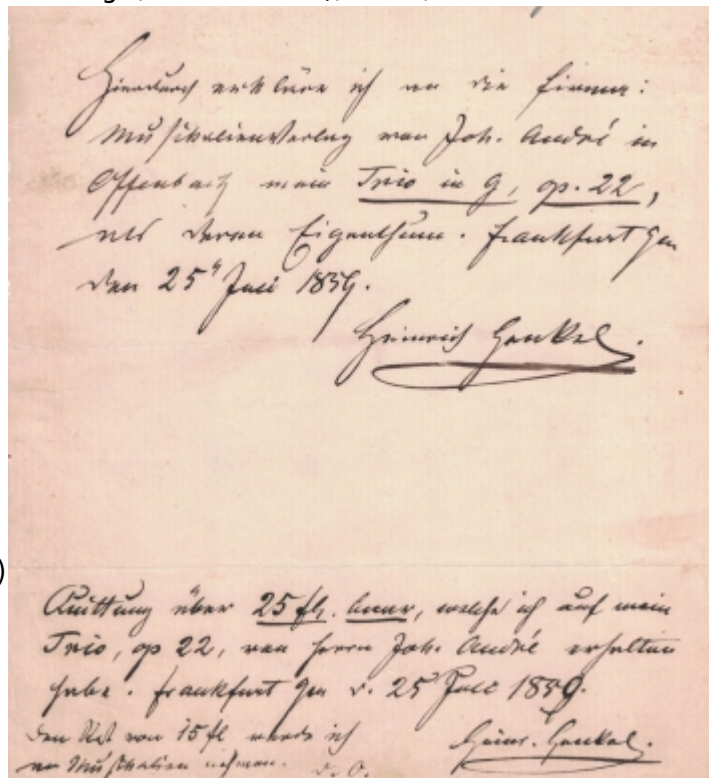 Hierdurch erkläre ich an die Firma:
Musikalienverlag von Joh. André in
Offenbach mein Trio in G, op. 22,
als deren Eigenthum. Frankfurt
den 25 Juli 1859.
Heinrich Henkel.
)
Quittung über 25 fl. baar, welche ich auf mein
Trio, op 22, von Herrn Joh. André erhalten
habe. Frankfurt d. 25 Juli 1859.
Den Rest von 15 fl werde ich
an Musikalien nehmen. d. O.
Heinr. Henkel.